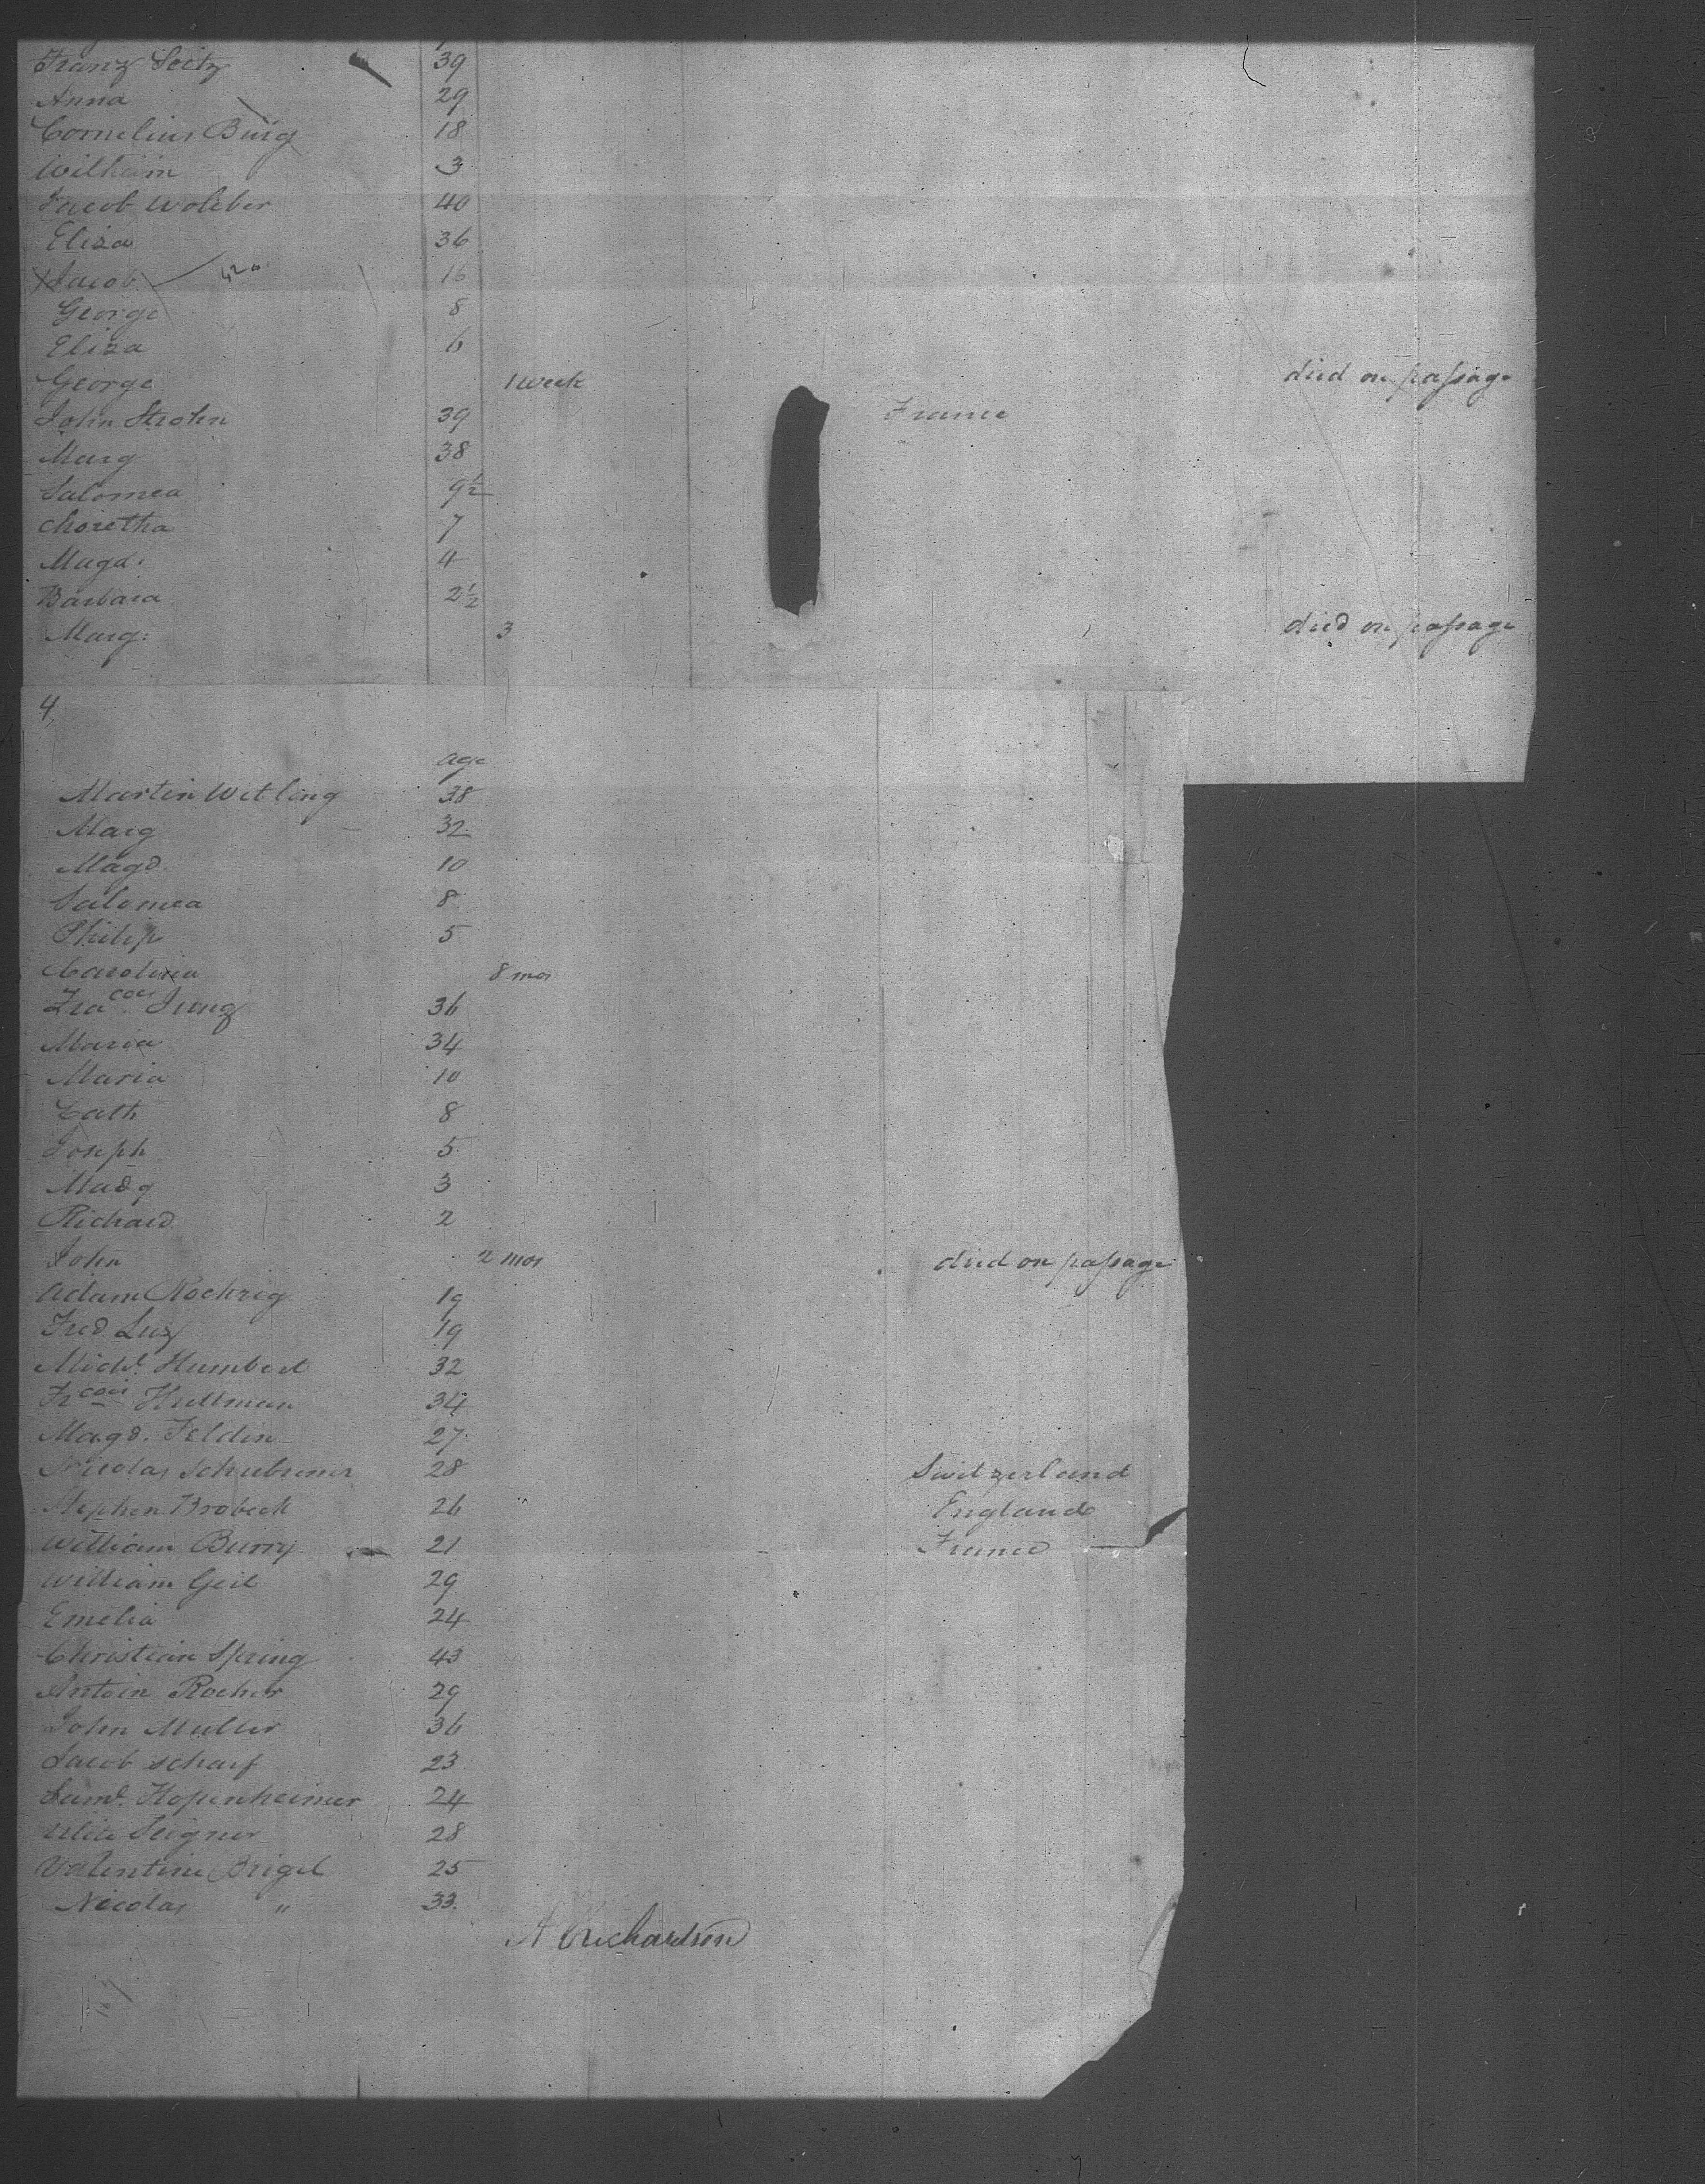 Franz Seitz 39
Anna 29
Cornelius Burg 18
Wilhelm 3
Jacob Woleber 40
Eliza 36
Jacob 16
George 8
Eliza 6
George 1 week died on passage
John Strohn 39 France
Marg 38
Salomea 9½
Choretha 7
Magd. 4
Barbara 2½
Marg: 3 died on passage
4
age
Martin Wetling 38
Marg 32
Magd. 10
Salomea 8
Philip 5
Carolina 8 mos
Fracois Jung 36
Maria 34
Maria 10
Cath 8
Joseph 5
Madg 3
Richard 2
John 2 mos died on passage
Adam Roehrig 19
Fred Luz 19
Michl. Humbert 32
Frcois Hullman 34
Magd. Feldin 27
Nicolas 28 Switzerland
Stephen Brobeck 26 England
William Burry 21 France
William Geil 29
Emelia 24
Christian Spring 43
Antoin Rocher 29
John Muller 36
Jacob Scharf 23
Saml. Hopenheimer 24
Seigner 28
Valentine Brigel 25
Nicolas " 33
A Richardson